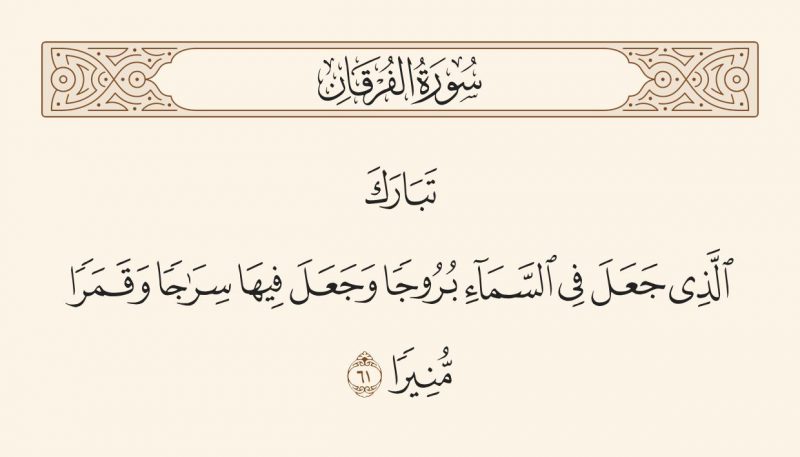 سُورَةُ الفُرْقَانِ
تَبَارَكَ
ٱلَّذِى جَعَلَ فِى ٱلسَّمَآءِ بُرُوجًا وَجَعَلَ فِيهَا سِرَٰجًا وَقَمَرًا
مُّنِيرًا ٦١